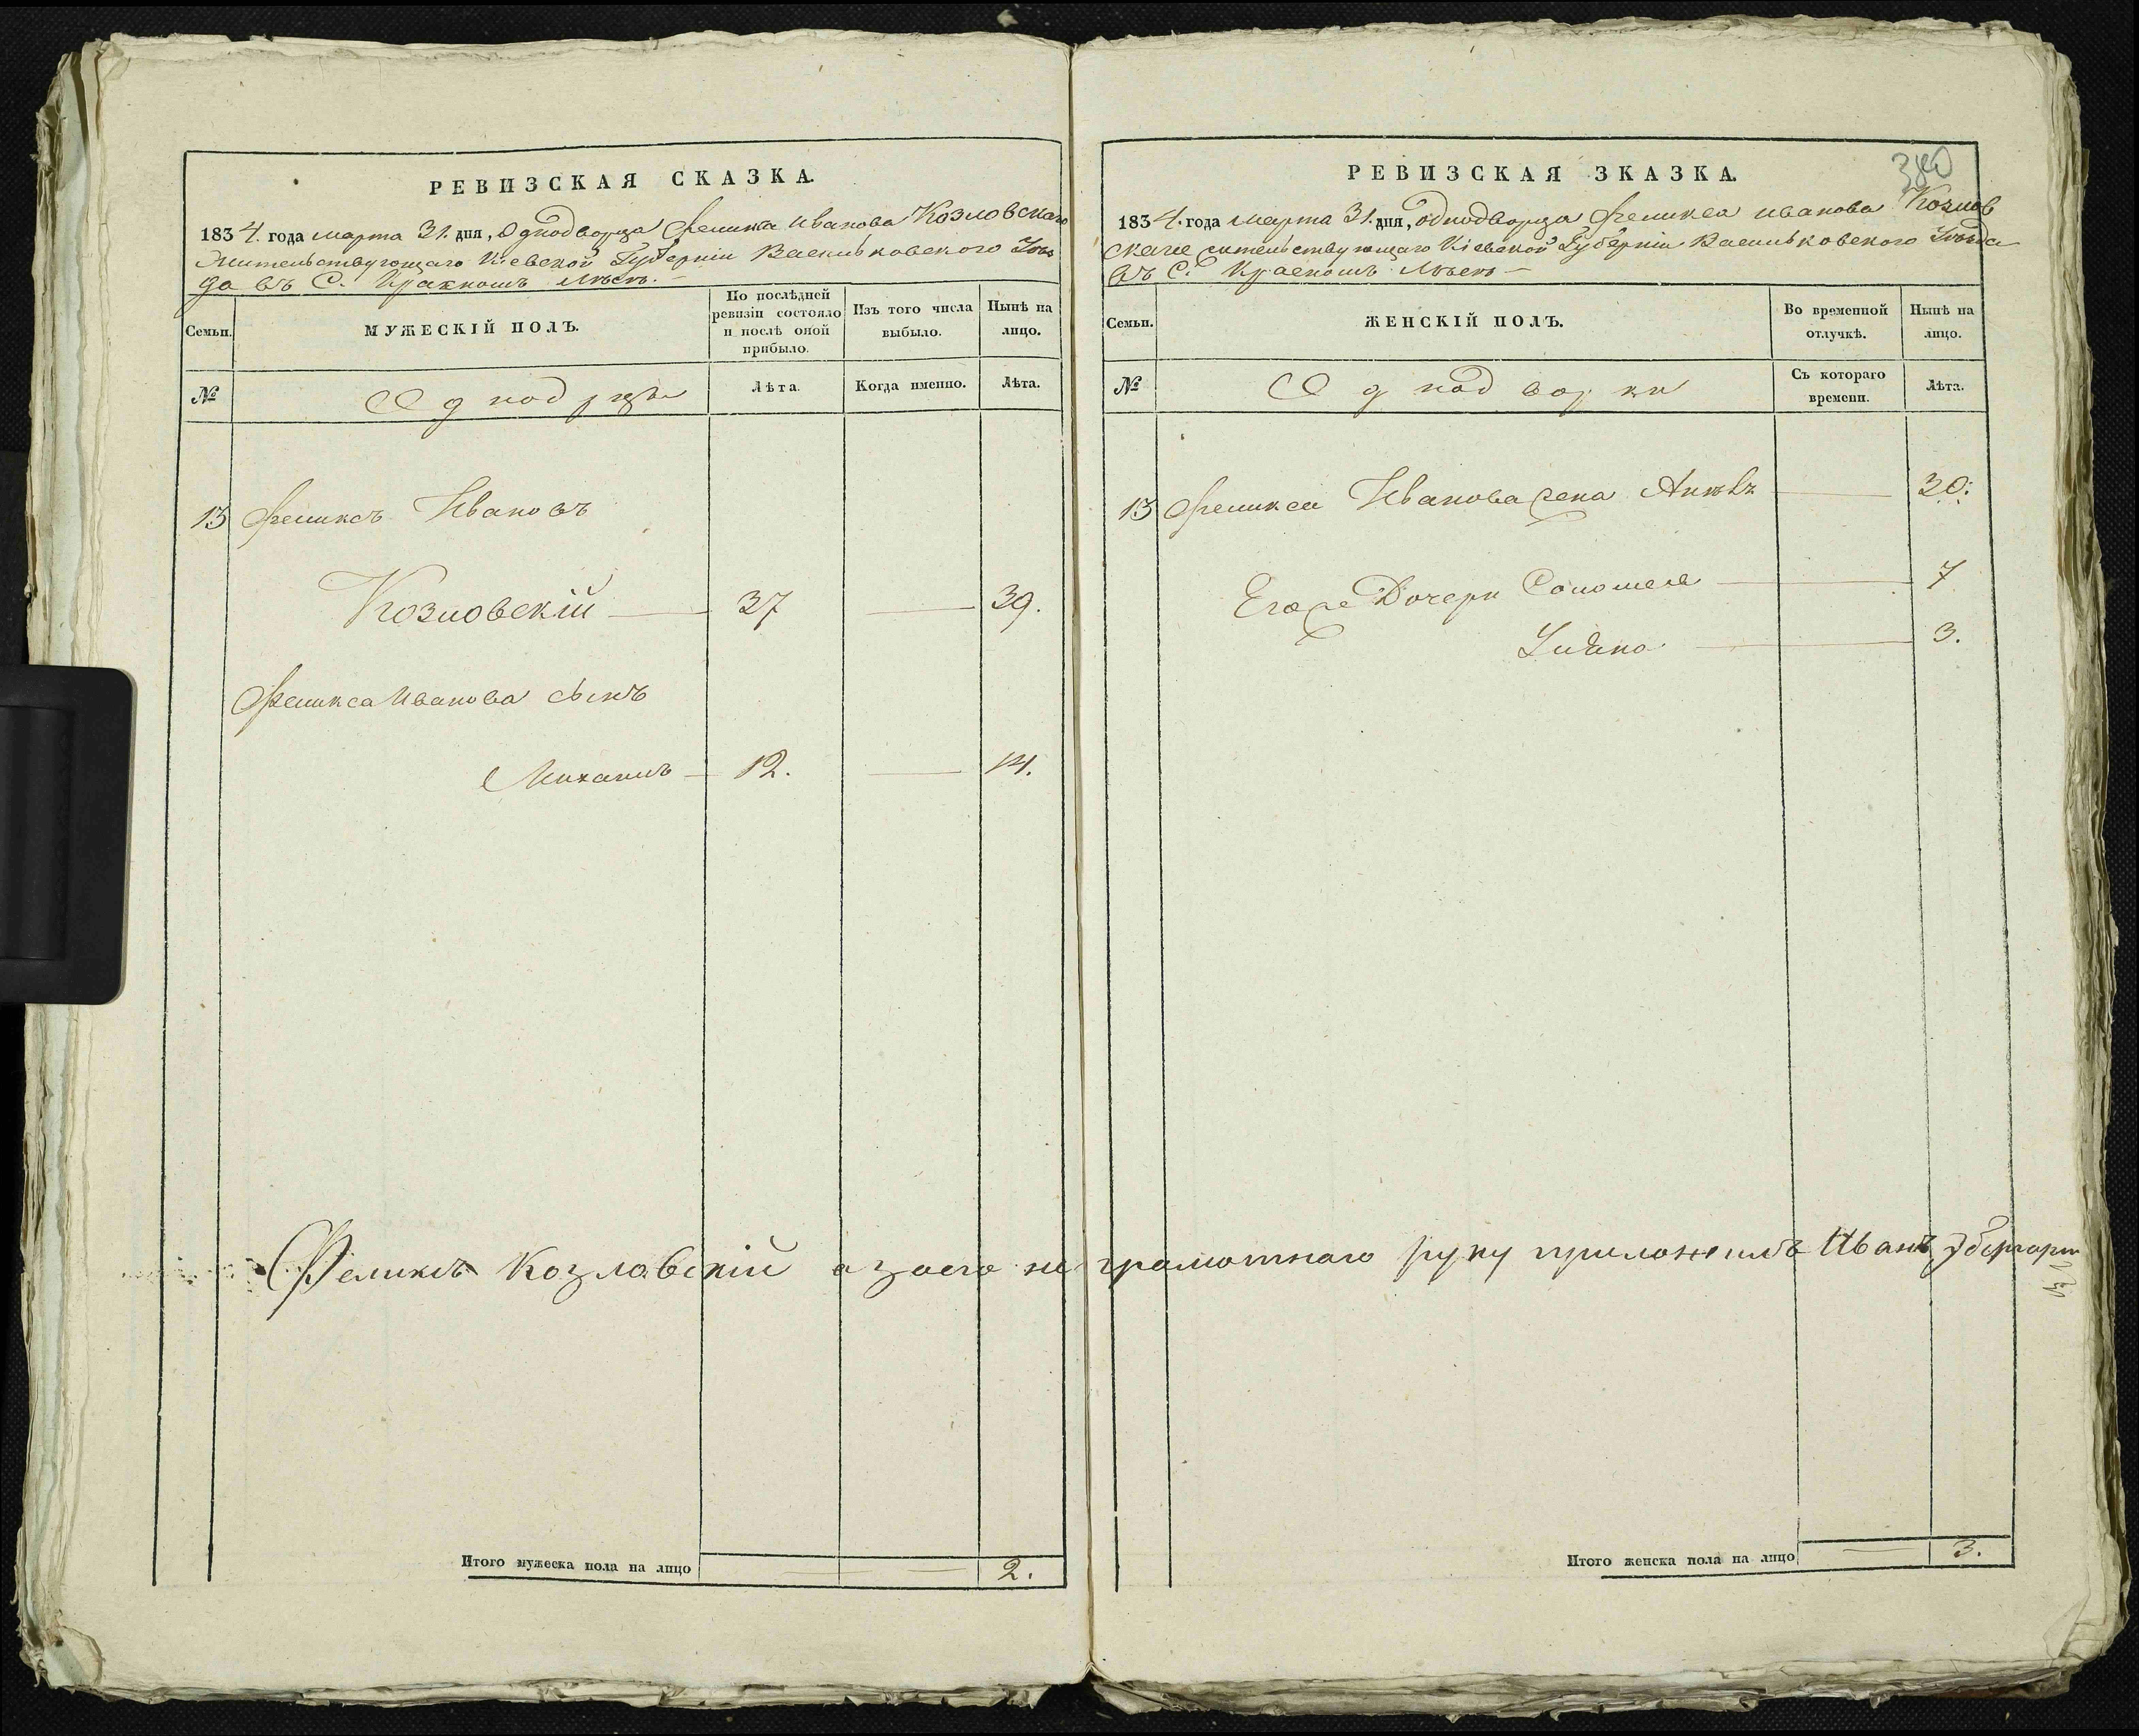 РЕВИЗСКАЯ СКАЗКА.
1834. года марта 31. дня, Однодворца Феликса Иванова Козловскаго
Жительствующаго Кіевской Губерніи Васильковского Уѣз
да въ С. Красномъ Лѣсѣ. –
Семьи.
МУЖЕСКІЙ ПОЛЪ.
По послѣдней ревизіи состояло и послѣ оной прибыло.
Изъ того числа выбыло.
Нынѣ на лицо.
№
Лѣта.
Когда именно.
Лѣта.
13 Феликсъ Ивановъ
Козловскій — 37 — 39.
Феликса Иванова сынъ
Михаилъ — 12. — 14.
Итого мужеска пола на лицо — — 2.
380
РЕВИЗСКАЯ ЗКАЗКА.
1834. года марта 31. дня, однодворца Феликса иванова Козлов
скаго жительствующаго Кіевской Губерніи Васильковского Уѣзда
въ С. Красномъ Лѣсѣ –
Семьи.
ЖЕНСКІЙ ПОЛЪ.
Во временной отлучкѣ.
Нынѣ на лицо.
№
Однодворки
Съ котораго времени.
Лѣта.
13 Феликса Иванова жена — 30.
Егоже Дочери Соломея — 7
— 3.
Феликсъ Козлавскій а заего не грамотнаго руку приложилъ Иванъ
Итого женска пола на лицо — 3.